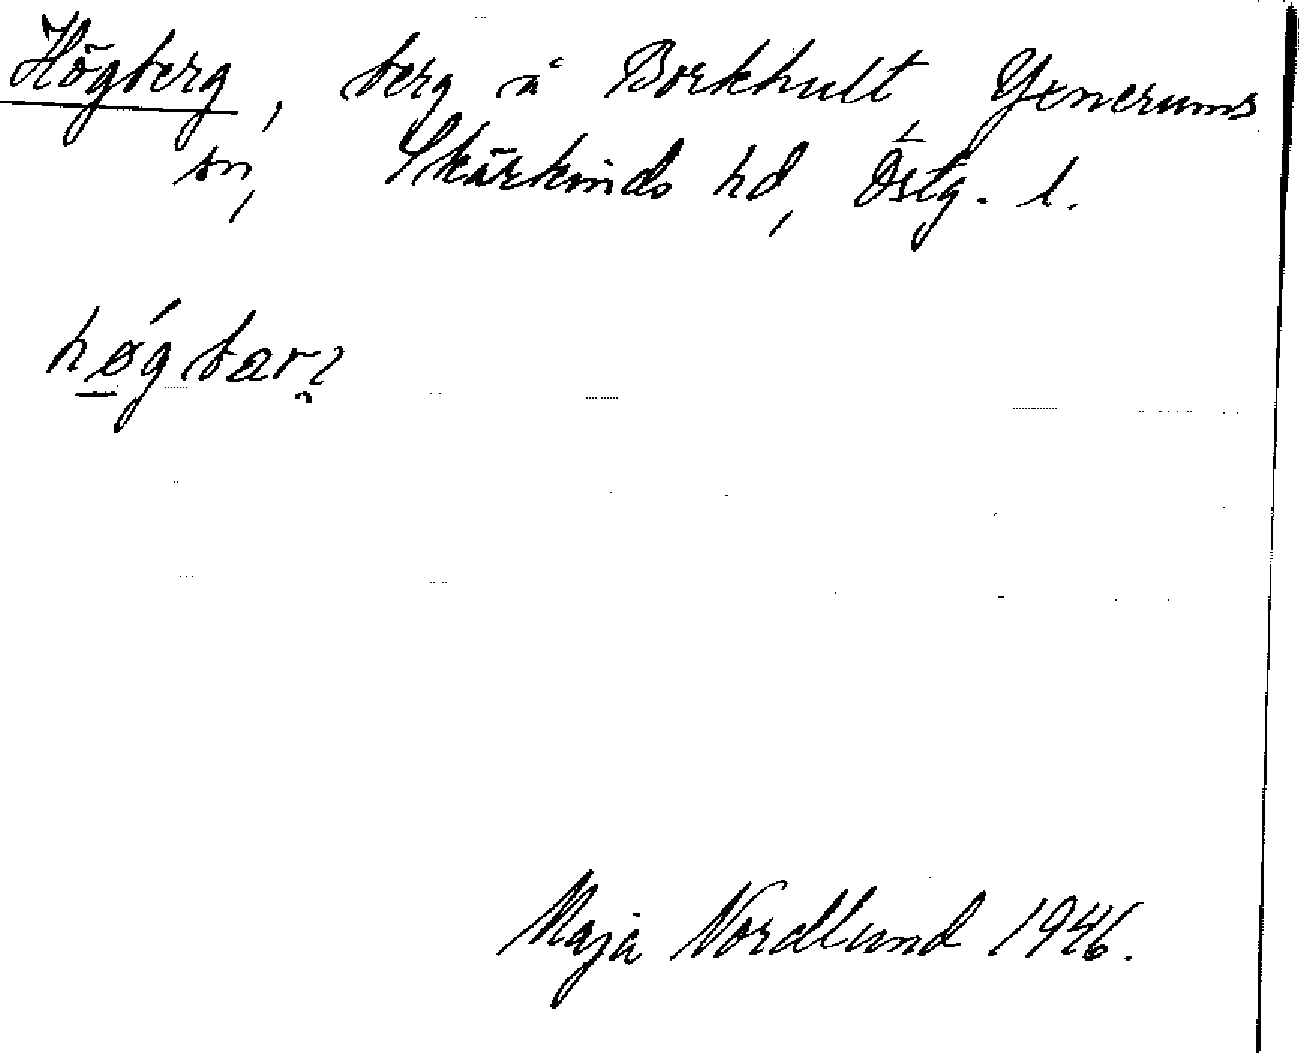 Högberg, berg å Borkhult, Yxnerums
sn, Skärkinds hd, Östg. l.
Maja Nordlund 1946.